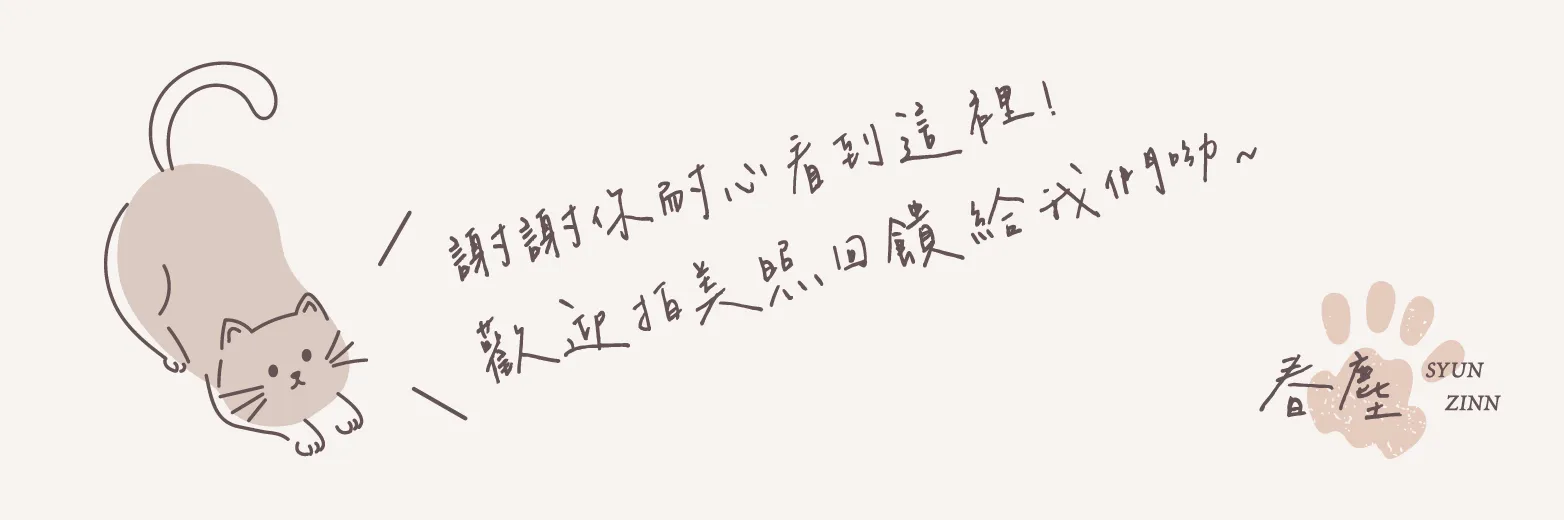 謝謝你耐心看到這裡!
歡迎拍美照回饋給我們呦~
春塵
SYUN
ZINN